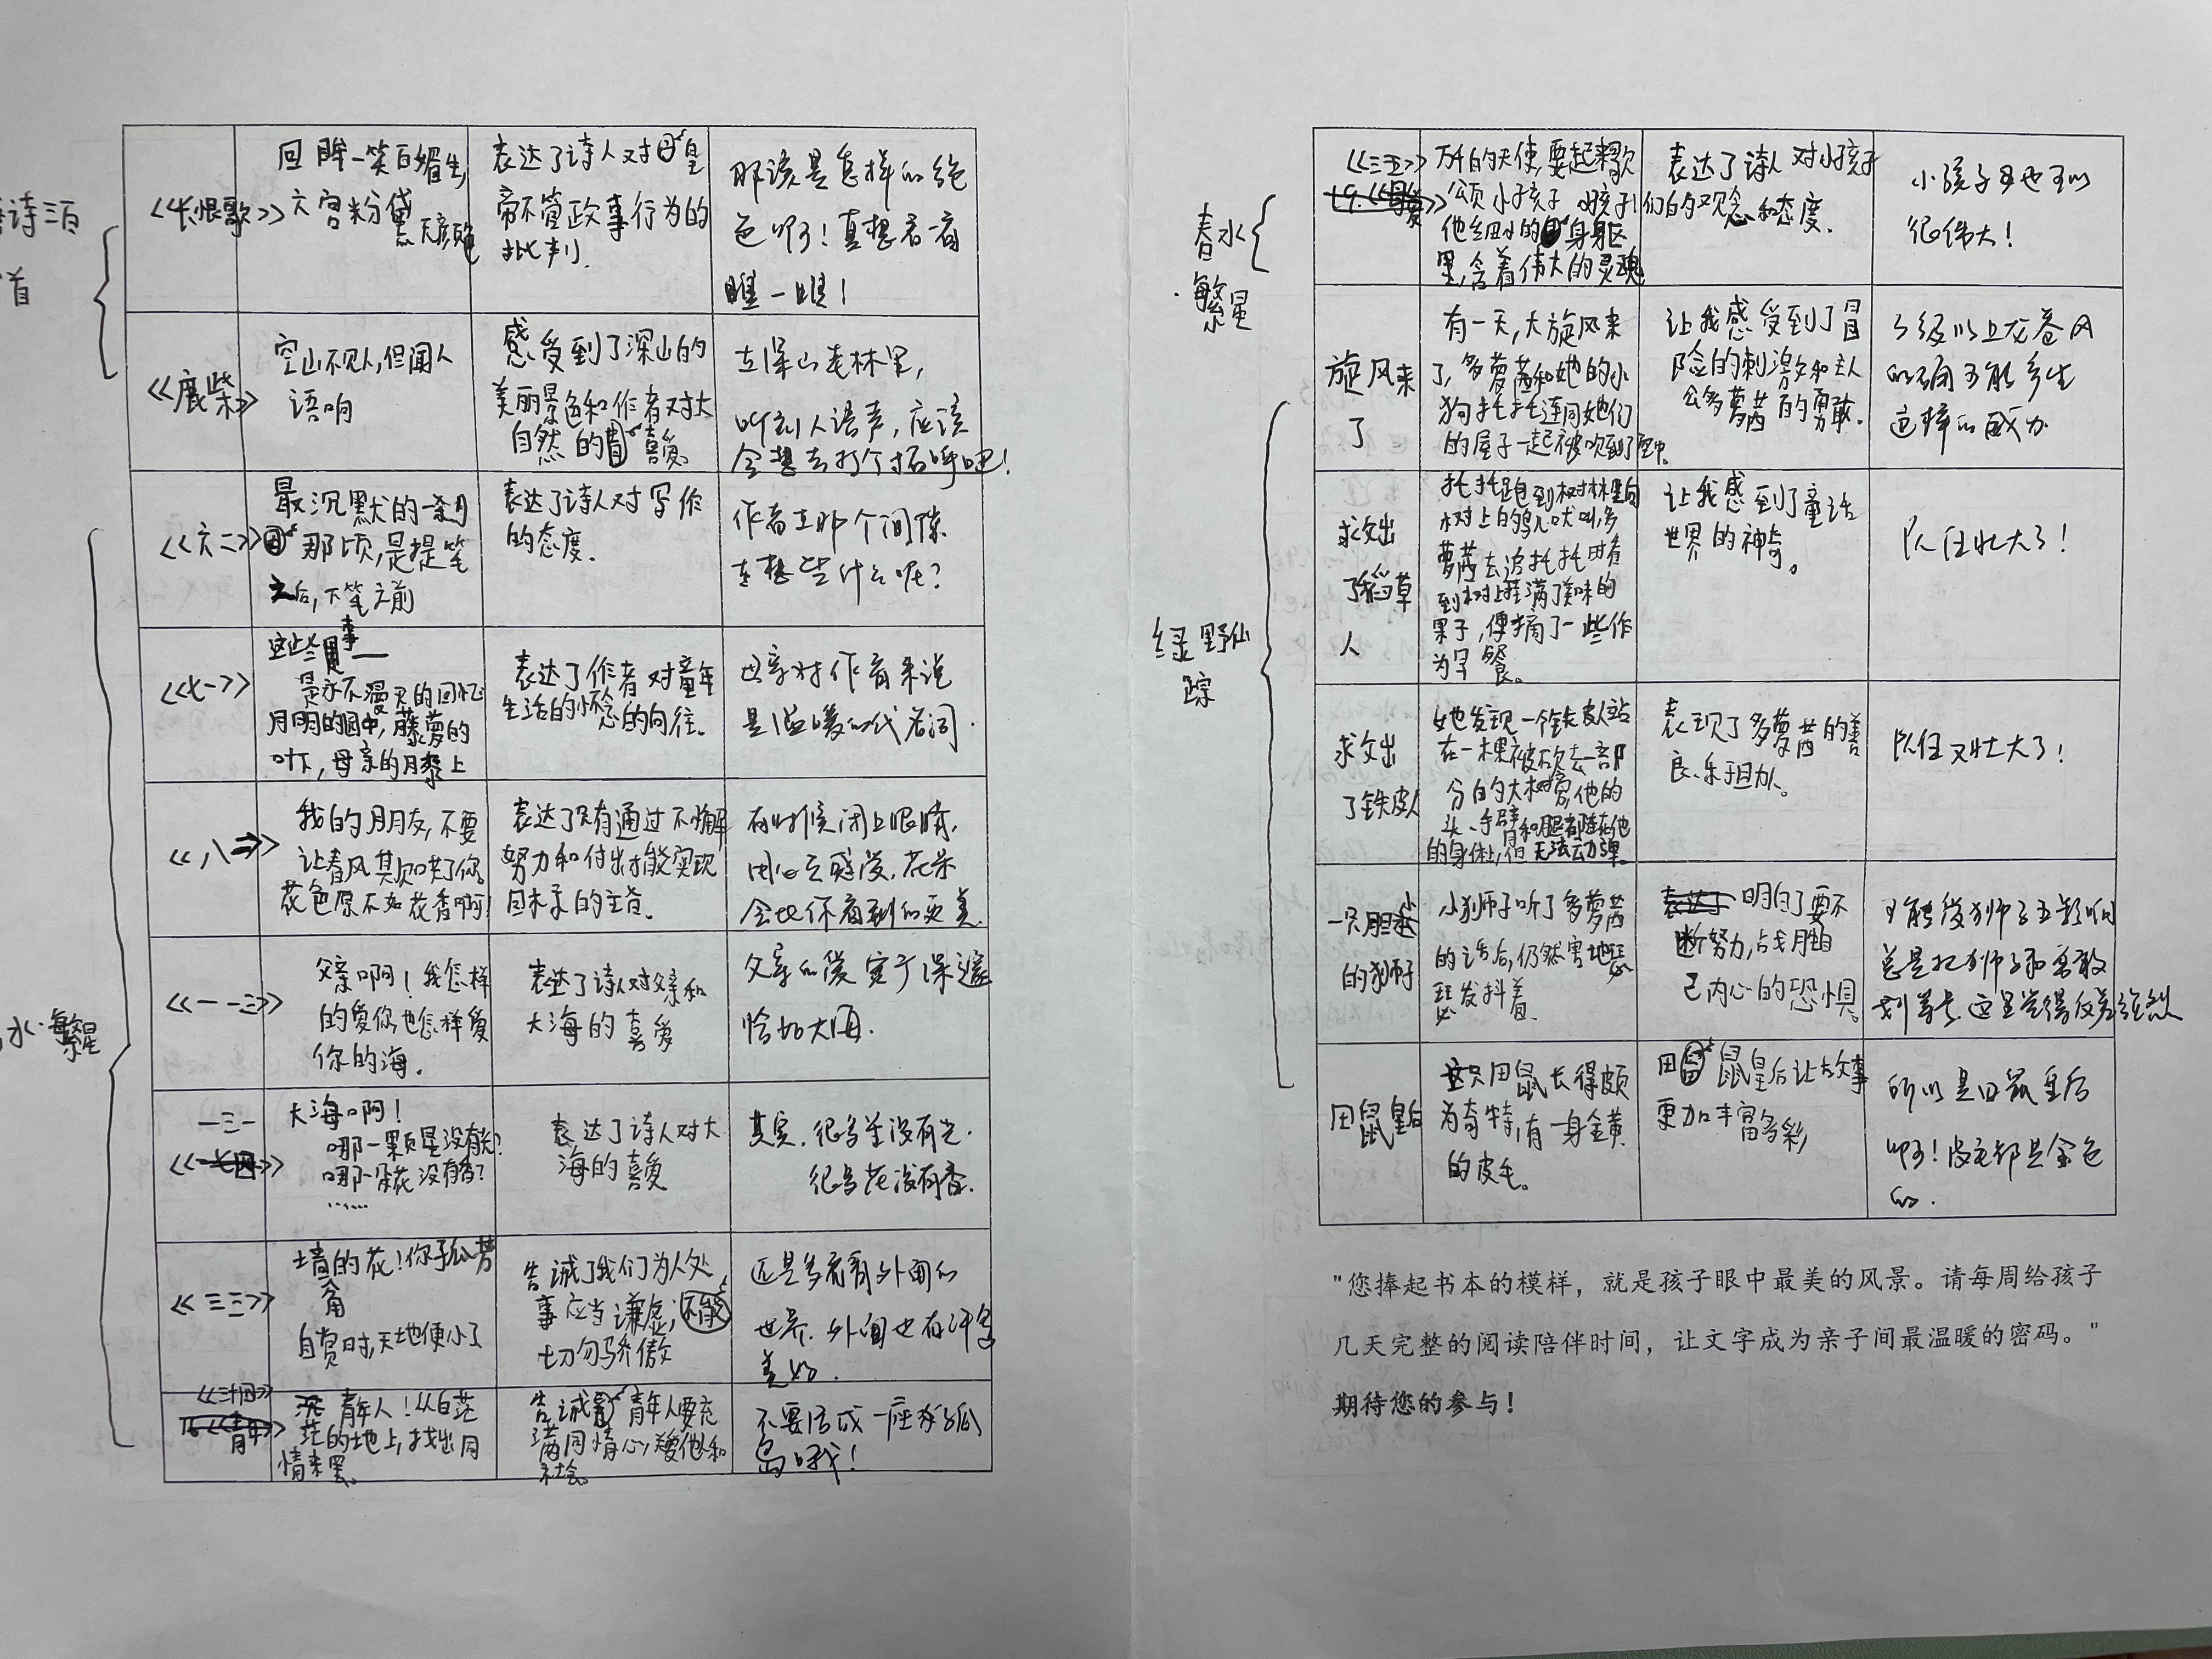 诗三百
首
《长恨歌》
回眸一笑百媚生,
六宫粉黛
无颜色
表达了诗人对皇
帝不管政事行为的
批判.
那该是怎样的绝
色啊!真想看一看
瞧一瞧!
《鹿柴》
空山不见人,但闻人
语响
感受到了深山的
美丽景色和作者对大
自然的喜爱
在深山老林里,
听到人语声,应该
会想去打个招呼吧!
水·繁星
《六二》
最沉默的一刹
那顷,是提笔
之后,下笔之前
表达了诗人对写作
的态度.
作者在那个间隙
在想些什么呢?
《七一》
这些事—
是永不漫灭的回忆
月明的园中,藤萝的
叶下,母亲的膝上
表达了作者对童年
生活的怀念的向往.
母亲对作者来说
是温暖的代名词.
我的朋友,不要
让春风欺哄了你,
花色原不如花香啊
表达了只有通过不懈
努力和付出才能实现
目标的主旨.
有时候闭上眼睛,
用心去感受,花朵
会比你看到的更美.
《一一三》
父亲啊!我怎样
的爱你,也怎样爱
你的海.
表达了诗人对父亲和
大海的喜爱
父亲的爱宽广深邃
恰如大海.
一三一
大海啊!
哪一颗星没有光?
哪一朵花没有香?
……
表达了诗人对大
海的喜爱
其实,很多星没有光.
很多花没有香.
《三三》
墙角的花!你孤芳
自赏时,天地便小了
告诫了我们为人处
事应当谦虚,
切勿骄傲
还是多看看外面的
世界.外面也有许多
美好.
《三十四》
青年人!从白茫
茫的地上,找出同
情来罢.
告诫青年人要充
满同情心,关爱他人和
社会.
不要活成一座孤
岛哦!
春水
·繁星
《三五》
万千的天使,要起来歌
颂小孩子 小孩子!
他细小的身躯
里,含着伟大的灵魂
表达了诗人对小孩子
们的观念和态度.
小孩子也可以
很伟大!
绿野仙
踪
旋风来
了
有一天,大旋风来
了,多萝茜和她的小
狗托托连同她们
的屋子一起被吹到了空中.
让我感受到了冒
险的刺激和主人
公多萝茜的勇敢.
级以上龙卷风
的确可能产生
这样的威力
求救出
了稻草
人
托托跑到树林里向
树上的鸟儿吠叫,多
萝茜去追托托时看
到树上挂满了美味的
果子,便摘了一些作
为早餐。
让我感到了童话
世界的神奇。
队伍壮大了!
求救出
了铁皮人
她发现一个铁皮人站
在一棵被砍去一部
分的大树旁,他的
头、手臂和腿都连在他
的身体上,但无法动弹.
表现了多萝茜的善
良、乐于助人。
队伍又壮大了!
一只胆小
的狮子
小狮子听了多萝茜
的话后,仍然害怕地
发抖着.
明白了要不
断努力,战胜自
己内心的恐惧。
可能受狮子王影响
总是把狮子和勇敢
划等号.这里觉得反差强烈
田鼠皇后
这只田鼠长得颇
为奇特,有一身金黄
的皮毛。
田鼠皇后让故事
更加丰富多彩
所以是田鼠皇后
啊!皮毛都是金色
的.
"您捧起书本的模样，就是孩子眼中最美的风景。请每周给孩子
几天完整的阅读陪伴时间，让文字成为亲子间最温暖的密码。"
期待您的参与！